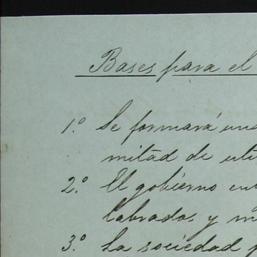 Bases para el
1.º Se formará una
mitad de uti
2.º El gobierno en
labrados y m
3.º La sociedad